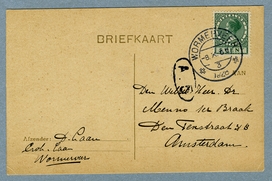 BRIEFKAART
WORMERVEER
AAN
A.
Den Weled. Heer Dr
Menno ter Braak
Den Texstraat 28
Amsterdam.
Afzender: D. Laan
Laan
Wormerveer